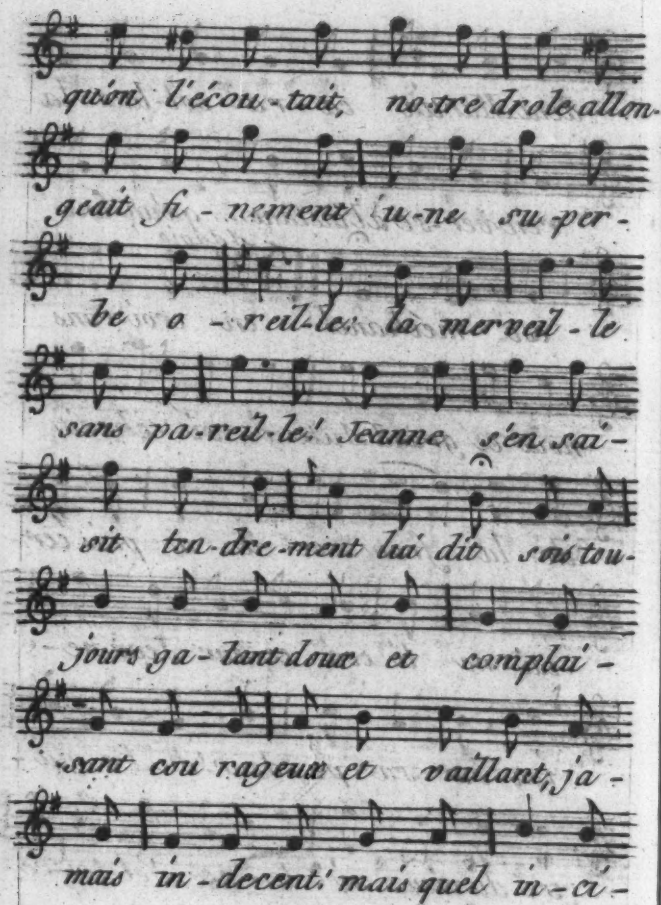 qu'on l'écou-tait, no-tre drole allon-
geait fi-nement u-ne su-per-
be o-reil-le: la merveil-le
sans pa-reil-le! Jeanne s'en sai-
sit ten-dre-ment lui dit sois tou-
jours ga-lant doux et complai-
sant cou rageux et vaillant, ja-
mais in-decent! mais quel in-ci-